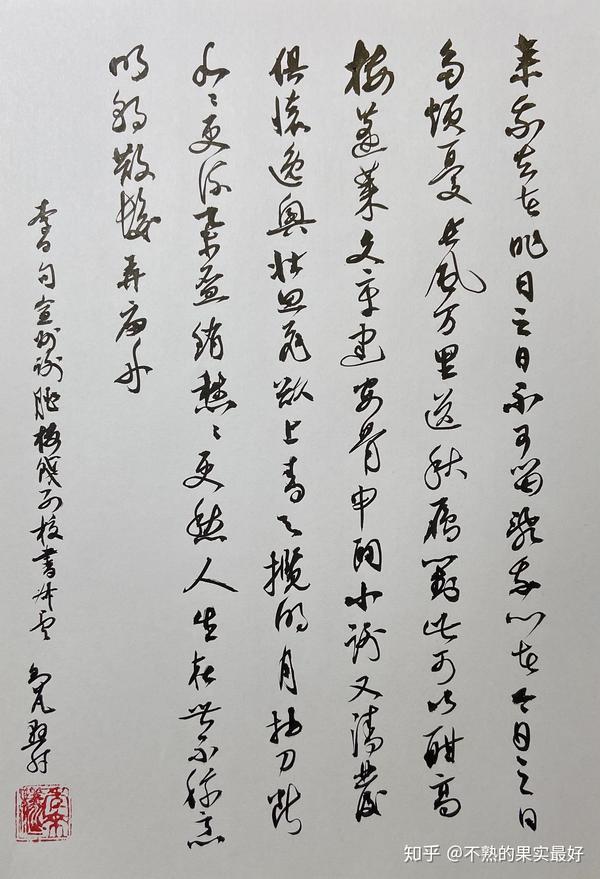 棄我去者昨日之日不可留亂我心者今日之日
多煩憂長風万里送秋雁對此可以酣高
樓蓬萊文章建安骨中間小謝又清發
俱懷逸興壯思飛欲上青天攬明月抽刀斷
水〻更流舉杯銷愁〻更愁人生在世不稱意
明朝散髮弄扁舟
李白句宣州謝朓樓餞別校書叔雲
知乎 @不熟的果实最好